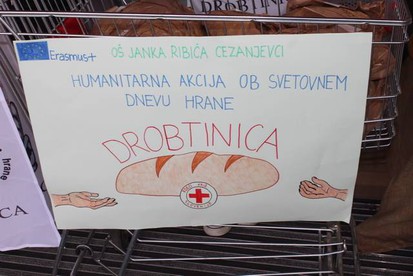 DROBTINICA
Erasmus+
OŠ JANKA RIBIČA CEZANJEVCI
HUMANITARNA AKCIJA OB SVETOVNEM
DNEVU HRANE
DROBTINICA
hrane
CA